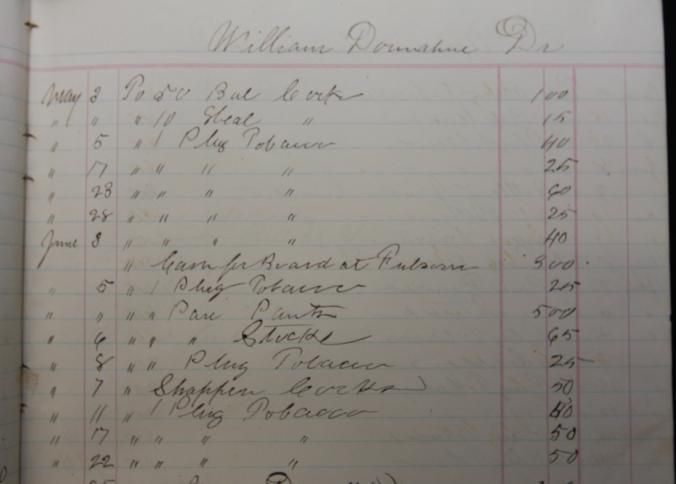 William Donnahue Dr
May 3 To 50 Bal Corks 100
" " " 10 Heal " 15
" 5 " 1 Plug Tobacco 40
" 17 " " " " 25
" 23 " " " " 60
" 28 " " " " 25
June 3 " " " " 40
" Cash for Board at Fulsom 300
" 5 " 1 Plug Tobacco 25
" " " " Pare Pants 500
" 6 " " " Stocks 65
" 8 " " Plug Tobacco 25
" 7 " Shappen Corks 50
" 11 " 1 Plug Tobacco 40
" 17 " " " " 50
" 22 " " " " 50